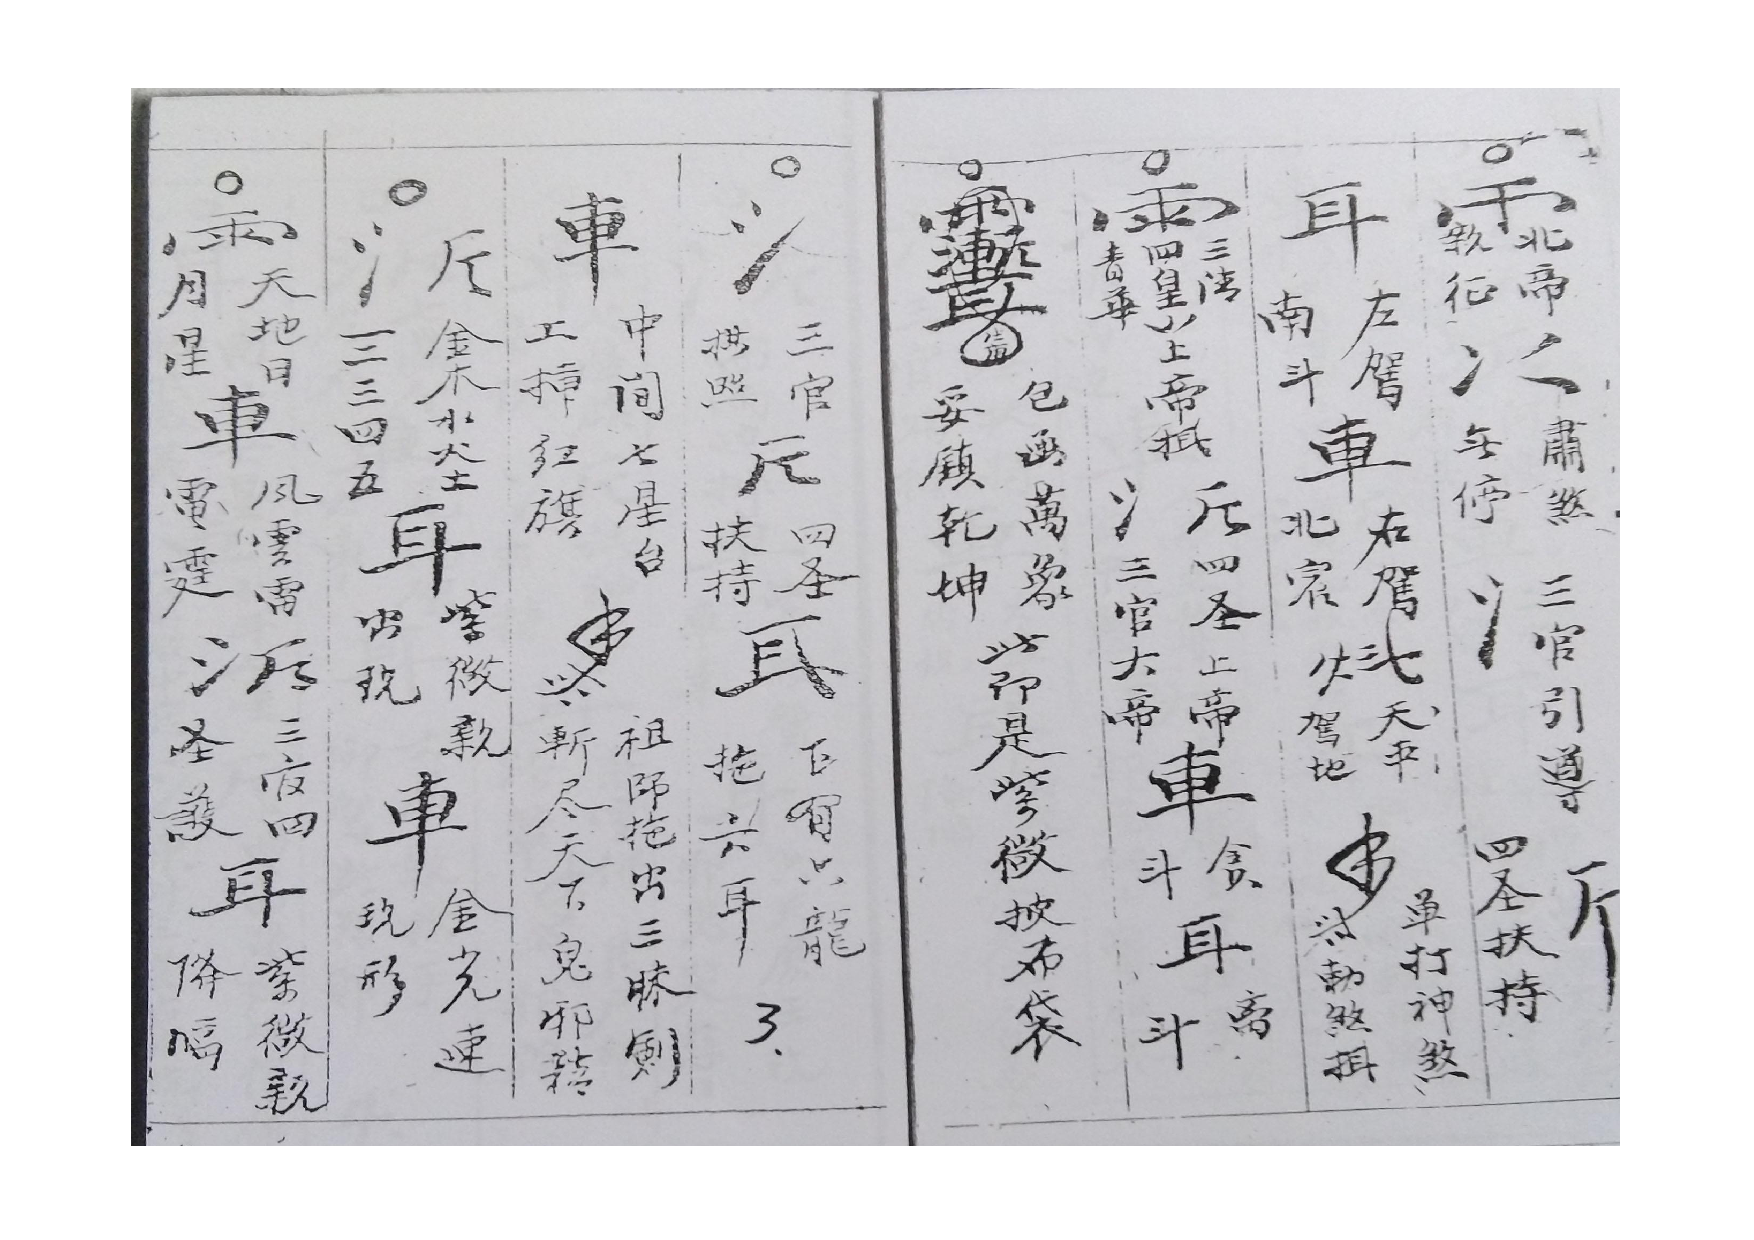 ○
雨
北帝
敕征
人
冫
肅煞
無停
氵
三官引導
斤
四圣扶持
耳
左駕
南斗
車
右駕
北
七
天平
駕地
單打神煞
勅煞
○
雨
三清
四皇
青華
上帝
斤
氵
四圣上帝
三官大帝
車
貪
斗
耳
斗
○
包函萬象
妥鎮乾坤
此印是紫微披布袋
○
氵
三官
拱照
斤
四圣
扶持
耳
下有六龍
拖六耳
3.
車
中間七星台
工撑紅旗
祖師拖出三勝劍
斬尽天下鬼邪精
○
斤
氵
金木水火土
一二三四五
耳
紫微親
出現
車
金光速
現形
○
雨
天地日
月星
車
風雲雷
電霆
氵
斤
三官四
圣護
耳
紫微親
降幅